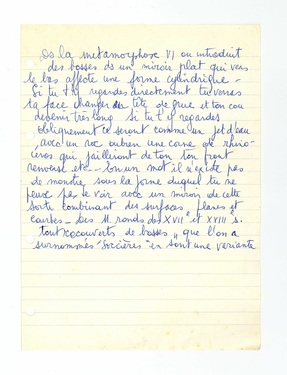 Ds la métamorphose VI on introduit
des bosses ds un miroir plat qui vers
le bas affecte une forme cylindrique -
Si tu t'y regardes directement tu verras
ta face changer en tête de grue et ton cou
devenir très long si tu t'y regardes
obliquement ce seront comme un jet d'eau
avec un roc ou bien une corne de rhino-
céros qui jailleront de ton front
renversé etc - En un mot il n'existe pas
de monstre sous la forme duquel tu ne
peux pas te voir avec un miroir de cette
sorte combinant des surfaces planes et
courbes - Des M. ronds des XVII e et XVIII e s.
tout recouverts de bosses, que l'on a
surnommés "Sorcières" en sont une variante